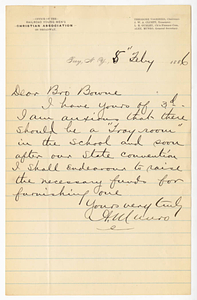 CHRISTIAN ASSOCIATION
Troy, N. Y. 5" Feby 1886
Dear Bro Bowne
I have yours of 3d.
I am anxious that there
should be a "Troy room
in the School and soon
after our State convention
I shall Endeavour to raise
the necessary funds for
furnishing one
Yours very truly
Munro